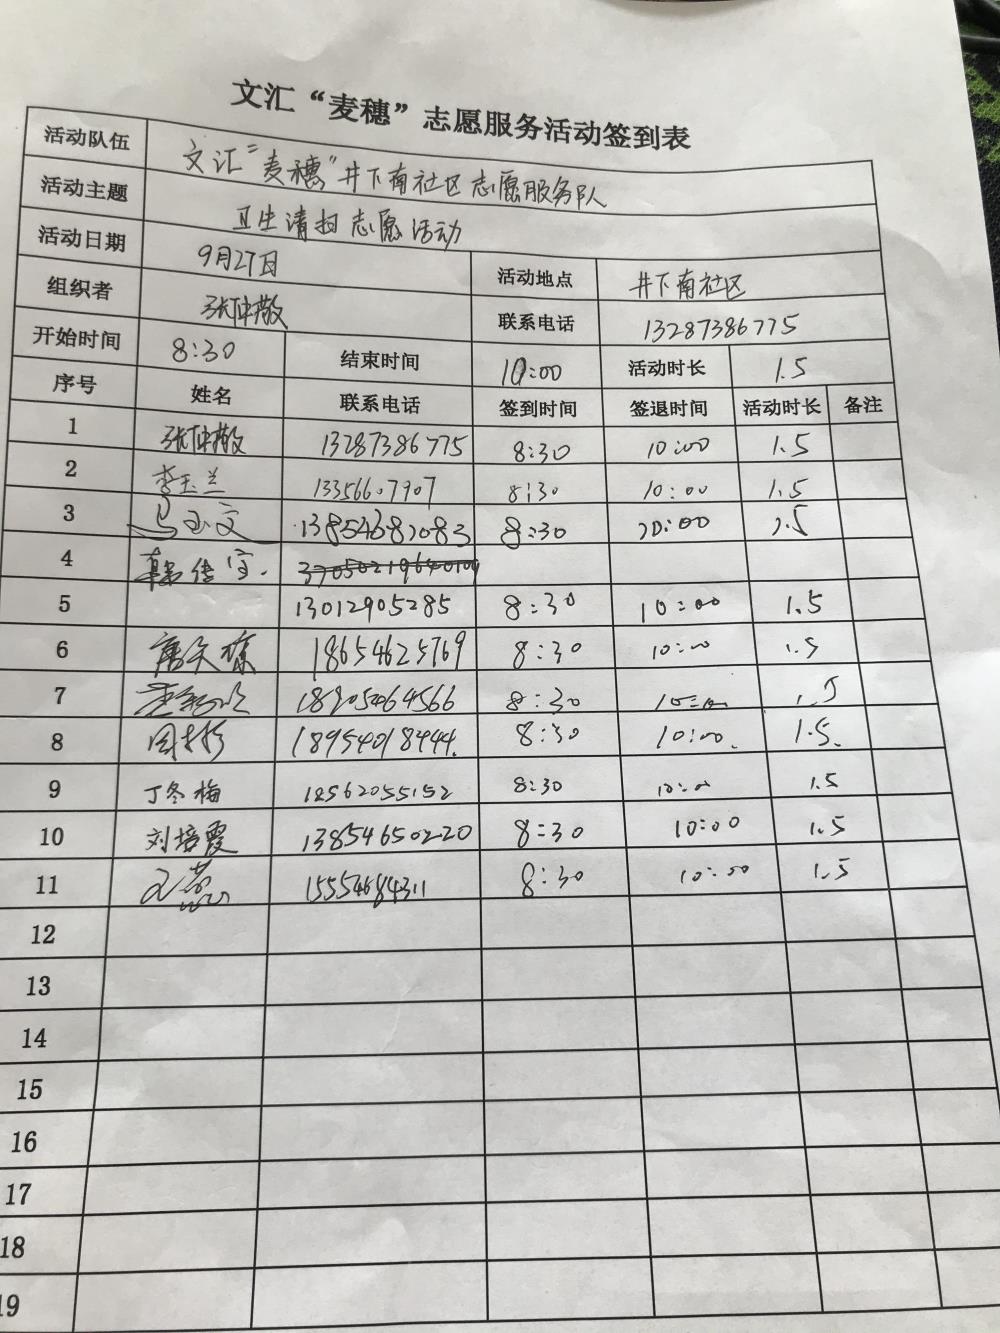 文汇“麦穗”志愿服务活动签到表
活动队伍 文汇“麦穗”井下南社区志愿服务队
活动主题 卫生请扫志愿活动
活动日期 9月27日 活动地点 井下南社区
组织者 张仲敬 联系电话 13287386775
开始时间 8:30 结束时间 10:00 活动时长 1.5
序号 姓名 联系电话 签到时间 签退时间 活动时长 备注
1 张仲敬 13287386775 8:30 10:00 1.5
2 李玉兰 13356607907 8:30 10:00 1.5
3 马玉文 13854682083 8:30 10:00 1.5
4
5 13012905285 8:30 10:00 1.5
6 18654625769 8:30 10:00 1.5
7 18205464566 8:30 10:00 1.5
8 周彬 18954018444. 8:30 10:00. 1.5.
9 丁冬梅 18562055152 8:30 10:00 1.5
10 刘培霞 13854650220 8:30 10:00 1.5
11 王蕊 15554684311 8:30 10:00 1.5
12
13
14
15
16
17
18
19